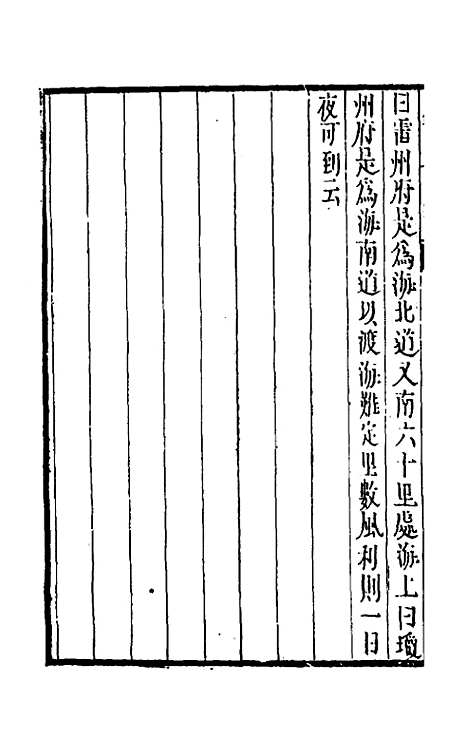 曰雷州府是爲海北道又南六十里處海上曰瓊
州府是爲海南道以渡海難定里數風利則一日
夜可到云